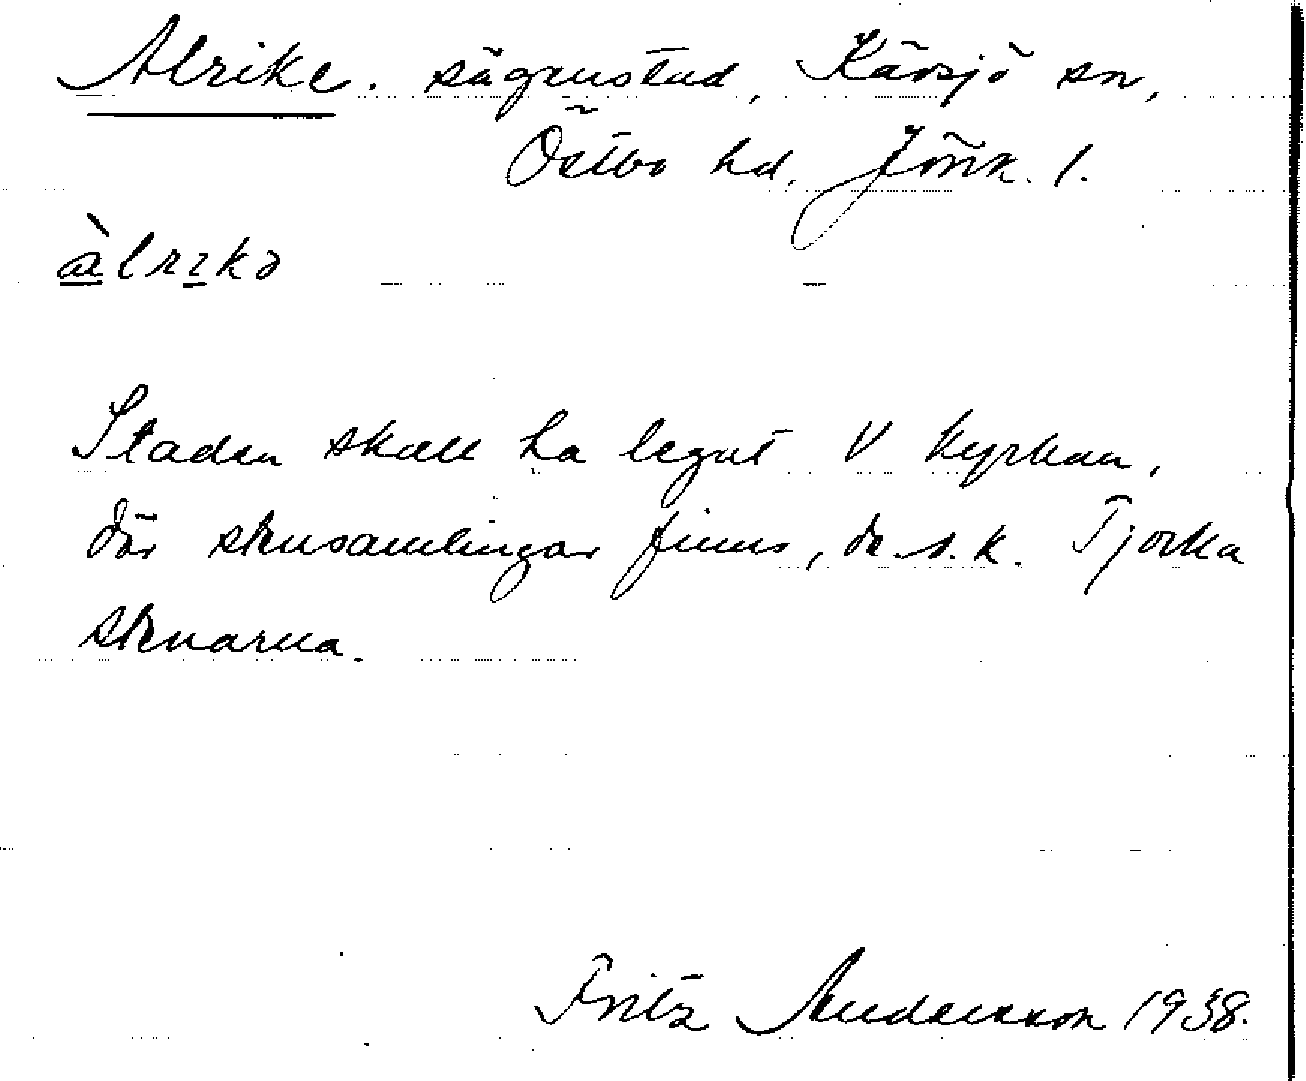 Alrike. sägenstad, Kävsjö sn,
Östbo hd. Jönk. l.
àlrıkə
Staden skall ha legat V kyrkan,
där stensamlingar finns, de s.k. Tjorka
stenarna.
Fritz Andersson 1938.